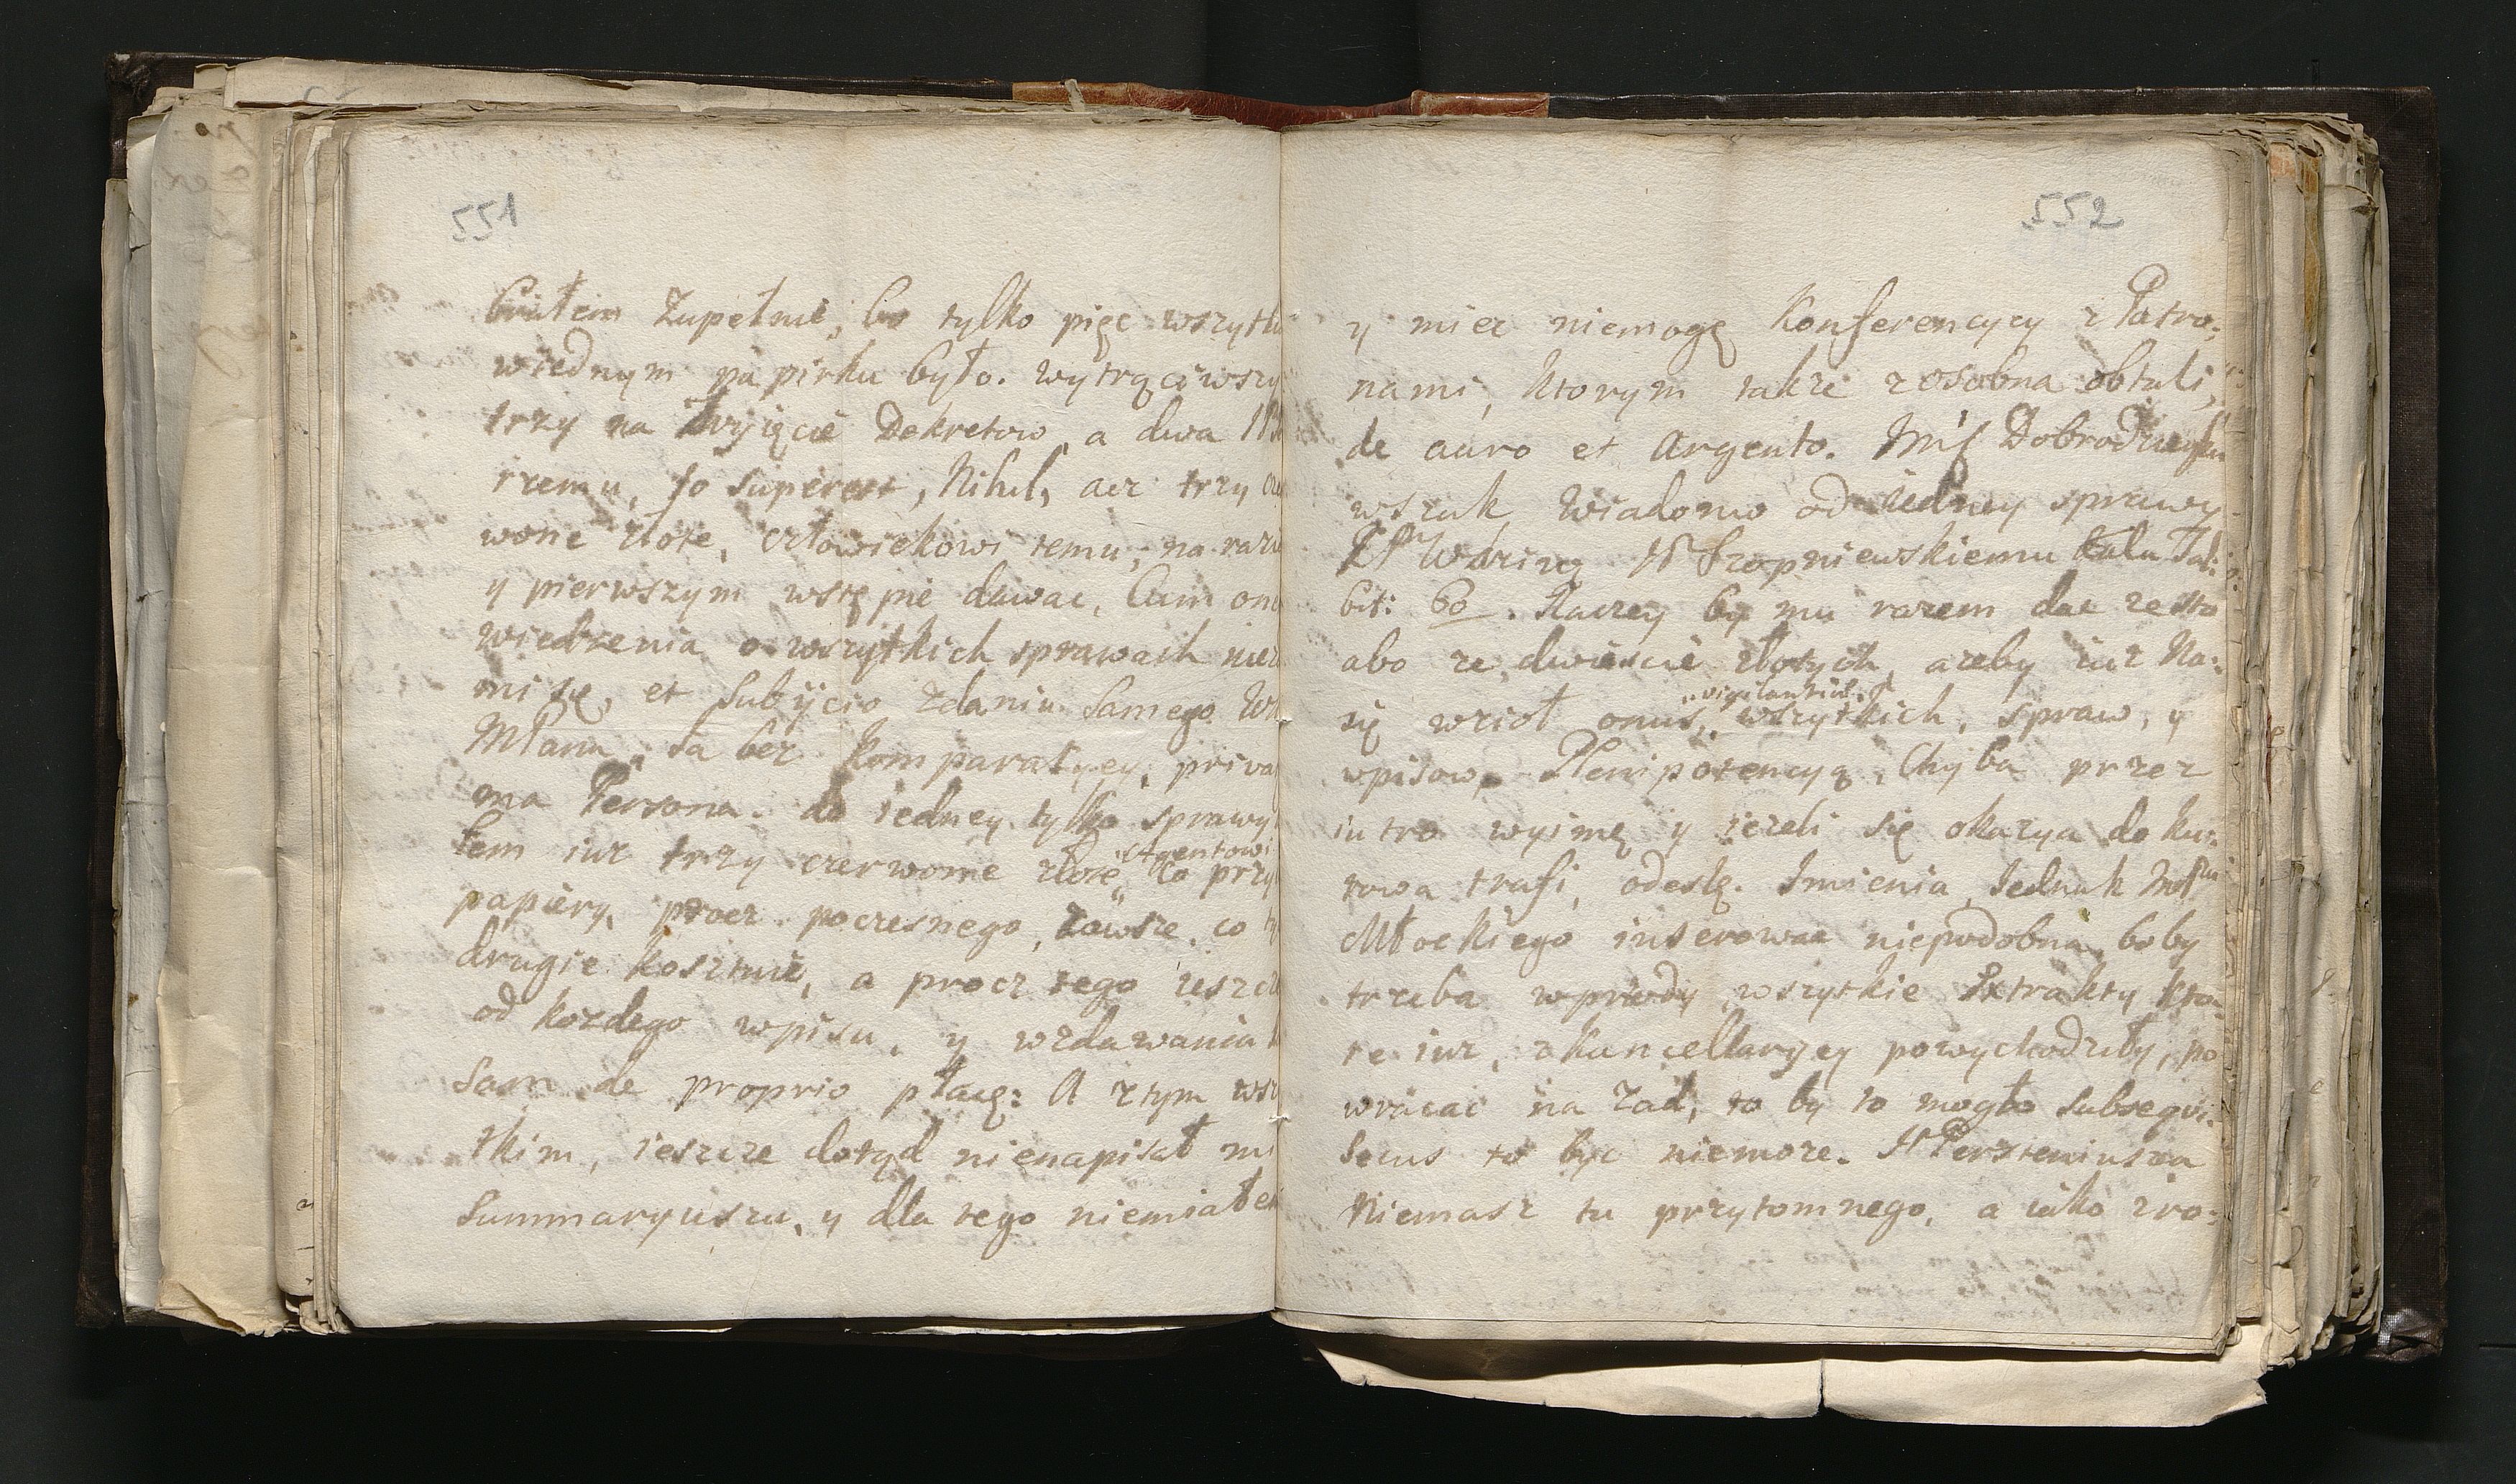 551
brałem Zupełnie, bo tylko pięc wszytk
wiednym papirku było. wytrąciwszy
trzy na wyięcie Dekretow, a dwa
rzemu, to superest, Nihil, acz trzy cze
wone złote, człowiekowi temu, na razie
y pierwszym wstępie dawac, Cum one
wiedzenia o wszytkich sprawach niez
mi się, et Subijcio zdaniu Samego W
MPanu, Ja bez Komparatycy, priva
ma Persona. do iedney tylko sprawy
łem iuz trzy czerwone złote, Agentowi Co przy
papiery, procz poczesnego, zawsze, co
drugie kosztuie, a procz tego ieszcze
od kozdego wpisu, y wzdawania
Sam de proprio płacę: A ztym wsz
tkim, ieszcze dotąd nienapisał mi
Summaryuszu, y dla tego niemiałem
552
y miec niemogę Konferencycy z Patro:
nami, Ktorym takze zosobna obtuli,
de auro et Argento. Dobrodzieyu
wszak Wiadomo od iedney sprawy
Szopniewskiemu
60. Raczey by mu razem dac ze sto
abo ze dwiescie złotych, azeby iuz Na:
się wzioł onus, vigilantiae wszytkich, spraw, y
wpisow, Plenipotencyą, Chyba przez
iutro wyimę y iezeli się okazya do ku:
rowa trafi, odeslę. Imienia Jednak
Młockiego inserowac niepodobna boby
trzeba wprzody wszytkie Extrakty kto:
re iuz, z kancellaryey powychodziły, po
wracac na Zad, to by to mogło Subsequi:
Secus to byc niemoze.
Niemasz tu przytomnego, a iako zro: